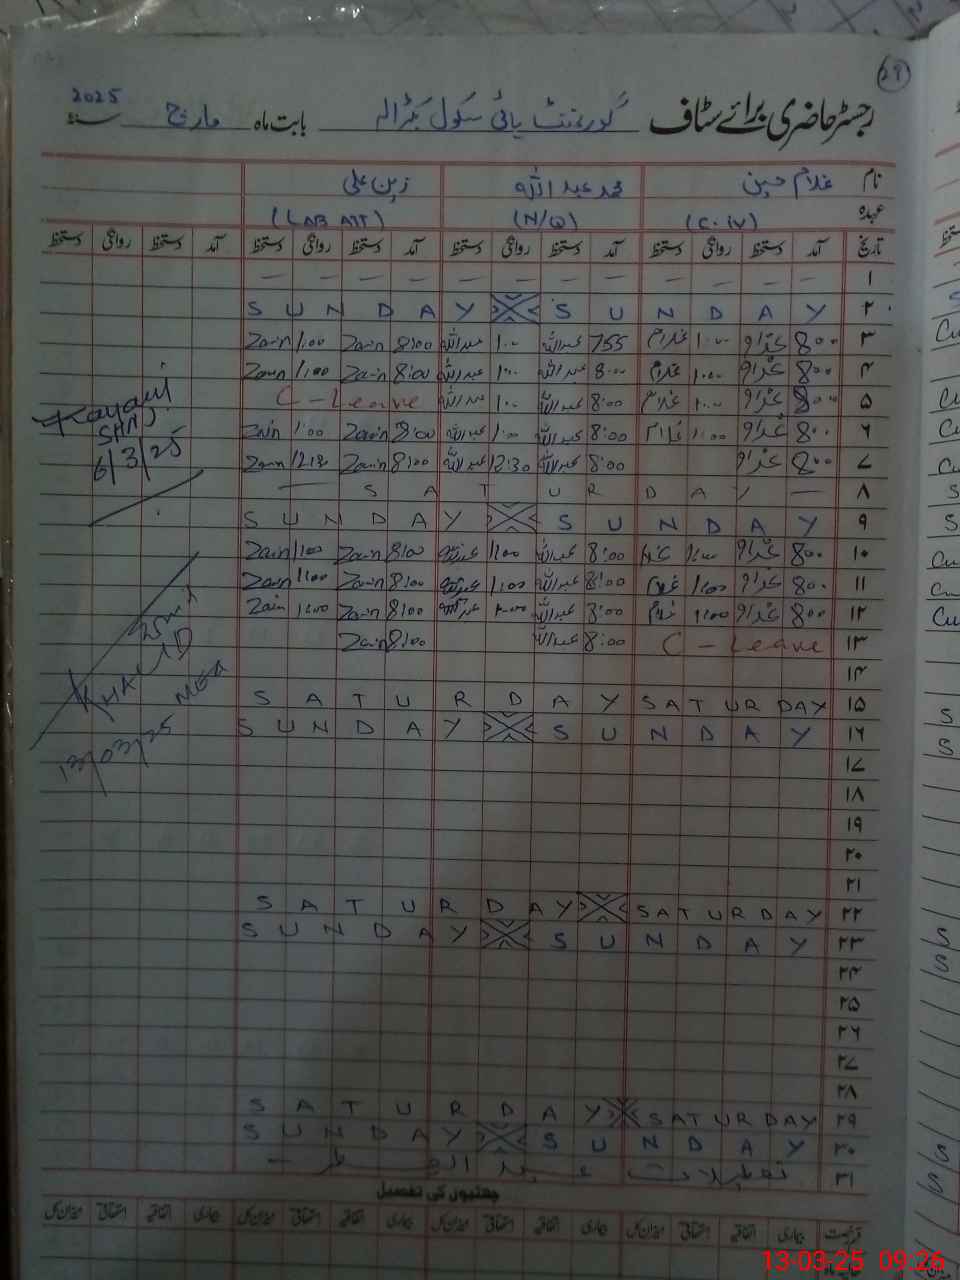 29
رجسٹر حاضری برائے سٹاف گورنمنٹ ہائی سکول بابت ماہ مارچ سنہ 2025
نام غلام حسین محمد عبداللہ زین علی
عہدہ (C-IV) (N/Q) (LAB ATT)
تاریخ آمد دستخط روانگی دستخط آمد دستخط روانگی دستخط آمد دستخط روانگی دستخط آمد دستخط روانگی دستخط
۱ — — — — — — — — — — — —
۲ S U N D A Y S U N D A Y
۳ 8:00 1:00 غلام 755 عبداللہ 1:00 عبداللہ 8:00 Zain 1:00 Zain
۴ 8:00 1:00 غلام 8:00 عبداللہ 1:00 عبداللہ 8:00 Zain 1:00 Zain
۵ 8:00 1:00 غلام 8:00 عبداللہ 1:00 عبداللہ C - Leave
۶ 8:00 1:00 غلام 8:00 عبداللہ 1:00 عبداللہ 8:00 Zain 1:00 Zain
۷ 8:00 8:00 عبداللہ 12:30 عبداللہ 8:00 Zain 12:30 Zain
۸ — S A T U R D A Y —
۹ S U N D A Y S U N D A Y
۱۰ 8:00 1:00 8:00 عبداللہ 1:00 عبداللہ 8:00 Zain 1:00 Zain
۱۱ 8:00 1:00 غلام 8:00 عبداللہ 1:00 عبداللہ 8:00 Zain 1:00 Zain
۱۲ 8:00 1:00 غلام 8:00 عبداللہ 1:00 عبداللہ 8:00 Zain 1:00 Zain
۱۳ C - Leave 8:00 عبداللہ 8:00 Zain
۱۴
۱۵ S A T U R D A Y SATURDAY
۱۶ S U N D A Y S U N D A Y
۱۷
۱۸
۱۹
۲۰
۲۱
۲۲ S A T U R D A Y SATURDAY
۲۳ S U N D A Y S U N D A Y
۲۴
۲۵
۲۶
۲۷
۲۸
۲۹ S A T U R D A Y SATURDAY
۳۰ S U N D A Y S U N D A Y
۳۱ تعطیلات عید الفطر
6/3/25
KHALID
MEA
13/03/25
چھٹیوں کی تفصیل
قسم رخصت بیماری اتفاقیہ استحقاقی میزان کل بیماری اتفاقیہ استحقاقی میزان کل بیماری اتفاقیہ استحقاقی میزان کل بیماری اتفاقیہ استحقاقی میزان کل
13-03-25 09:26